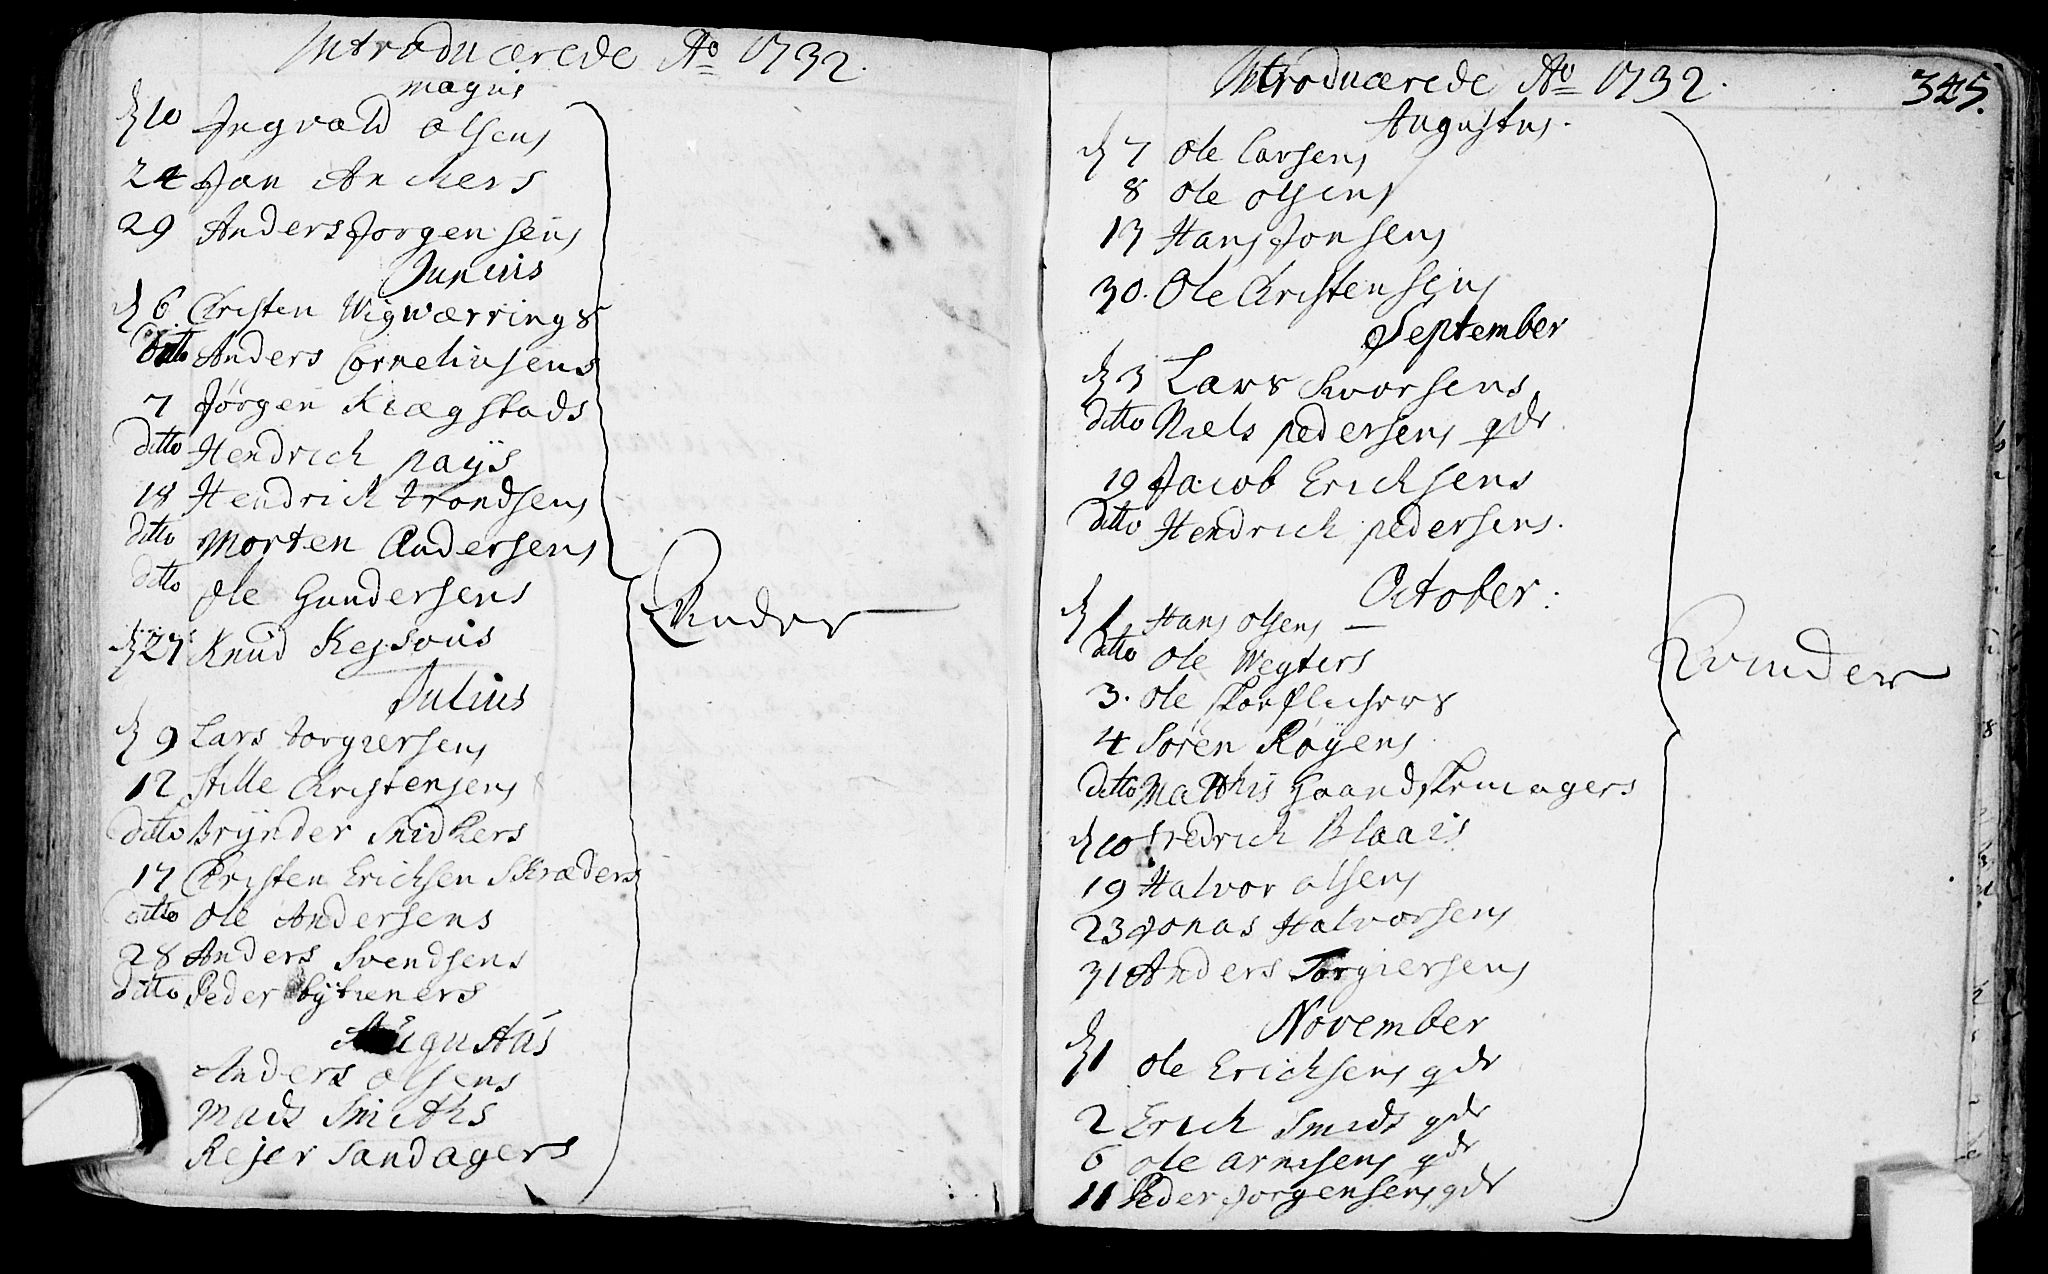 Introducerede Ao 1732.
magus
d 10 Ingvald Olsens
24 Jan Anckers
29 Anders Jorgensens
Junius
d 6 Christen Wigværrings
Ditto Anders Corneliusens
7 Jørgen Kiægstads
ditto Hendrich pays
18 Hendrich trondsens
ditto Morten Andersens
ditto Ole Gundersens
d 27 Knud
Qvinder
Julius
d 9 Lars torgiersens
12 Stille Christensens
ditto Brynder Snidkers
17 Christen Ericksen Skræders
ditto Ole Andersens
28 Anders Svendsens
ditto Peder
Augustus
Anders Olsens
Mads Smiths
Rejer Sandagers
Introducerede Ao 1732.
345.
Augustus.
d 7 Ole Larsens
8 Ole Olsens
13 Hans Jonsens
30. Ole Christensens
September
d 3 Lars Iworsens
ditto Niels pedersens qdr
19 Jacob Ericksens
ditto Hendrich pedersens.
October:
d 1 Hans Olsens
ditto Ole Wegters
3. Ole skoeflickers
4 Soren Røyens
ditto Matthis Haandskemagers
Qvinder
d 10 fredrich Blaais
19 Halvor Olsens
23 Jonas Halvorsens
31 Anders Torgiersens
November
d 1 Ole Ericksens qdr
2 Erich Smids qdr
6 Ole arnesens qdr
11 Peder Jorgensens qdr